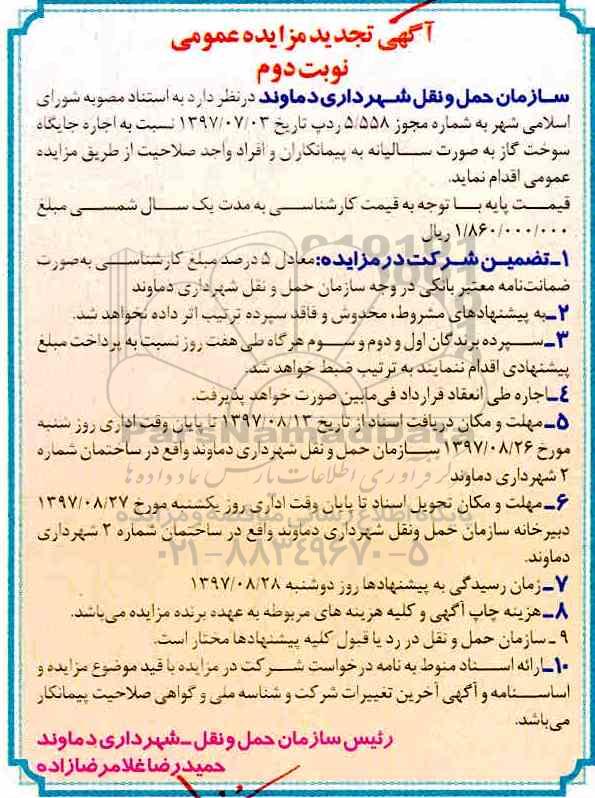 آگهی تجدید مزایده عمومی
نوبت دوم
سازمان حمل و نقل شهرداری دماوند درنظر دارد به استناد مصوبه شورای
اسلامی شهر به شماره مجوز ۵/۵۵۸ ردپ تاریخ ۱۳۹۷/۰۷/۰۳ نسبت به اجاره جایگاه
سوخت گاز به صورت سالیانه به پیمانکاران و افراد واجد صلاحیت از طریق مزایده
عمومی اقدام نماید.
قیمت پایه با توجه به قیمت کارشناسی به مدت یک سال شمسی مبلغ
۱/۸۶۰/۰۰۰/۰۰۰ ریال
۱ـ تضمین شرکت در مزایده: معادل ۵ درصد مبلغ کارشناسی به‌صورت
ضمانت‌نامه معتبر بانکی در وجه سازمان حمل و نقل شهرداری دماوند
۲ـ به پیشنهادهای مشروط، مخدوش و فاقد سپرده ترکیب اثر داده نخواهد شد.
۳ـ سپرده برندگان اول و دوم و سوم هرگاه طی هفت روز نسبت به پرداخت مبلغ
پیشنهادی اقدام ننمایند به ترتیب ضبط خواهد شد.
۴ـ اجاره طی انعقاد قرارداد فی‌مابین صورت خواهد پذیرفت.
۵ـ مهلت و مکان دریافت اسناد از تاریخ ۱۳۹۷/۰۸/۱۳ تا پایان وقت اداری روز شنبه
مورخ ۱۳۹۷/۰۸/۲۶ سازمان حمل و نقل شهرداری دماوند واقع در ساختمان شماره
۲ شهرداری دماوند
۶ـ مهلت و مکان تحویل اسناد تا پایان وقت اداری روز یکشنبه مورخ ۱۳۹۷/۰۸/۲۷
دبیرخانه سازمان حمل ونقل شهرداری دماوند واقع در ساختمان شماره ۲ شهرداری
دماوند.
۷ـ زمان رسیدگی به پیشنهادها روز دوشنبه ۱۳۹۷/۰۸/۲۸
۸ـ هزینه چاپ آگهی و کلیه هزینه های مربوطه به عهده برنده مزایده می‌باشد.
۹ـ سازمان حمل و نقل در رد یا قبول کلیه پیشنهادها مختار است.
۱۰ـ ارائه اسناد منوط به نامه درخواست شرکت در مزایده با قید موضوع مزایده و
اساسنامه و آگهی آخرین تغییرات شرکت و شناسه ملی و گواهی صلاحیت پیمانکار
می‌باشد.
رئیس سازمان حمل و نقل ـ شهرداری دماوند
حمیدرضا غلامرضازاده
ParsNamadData
۰۲۱-۸۸۳۴۹۶۷۰-۵